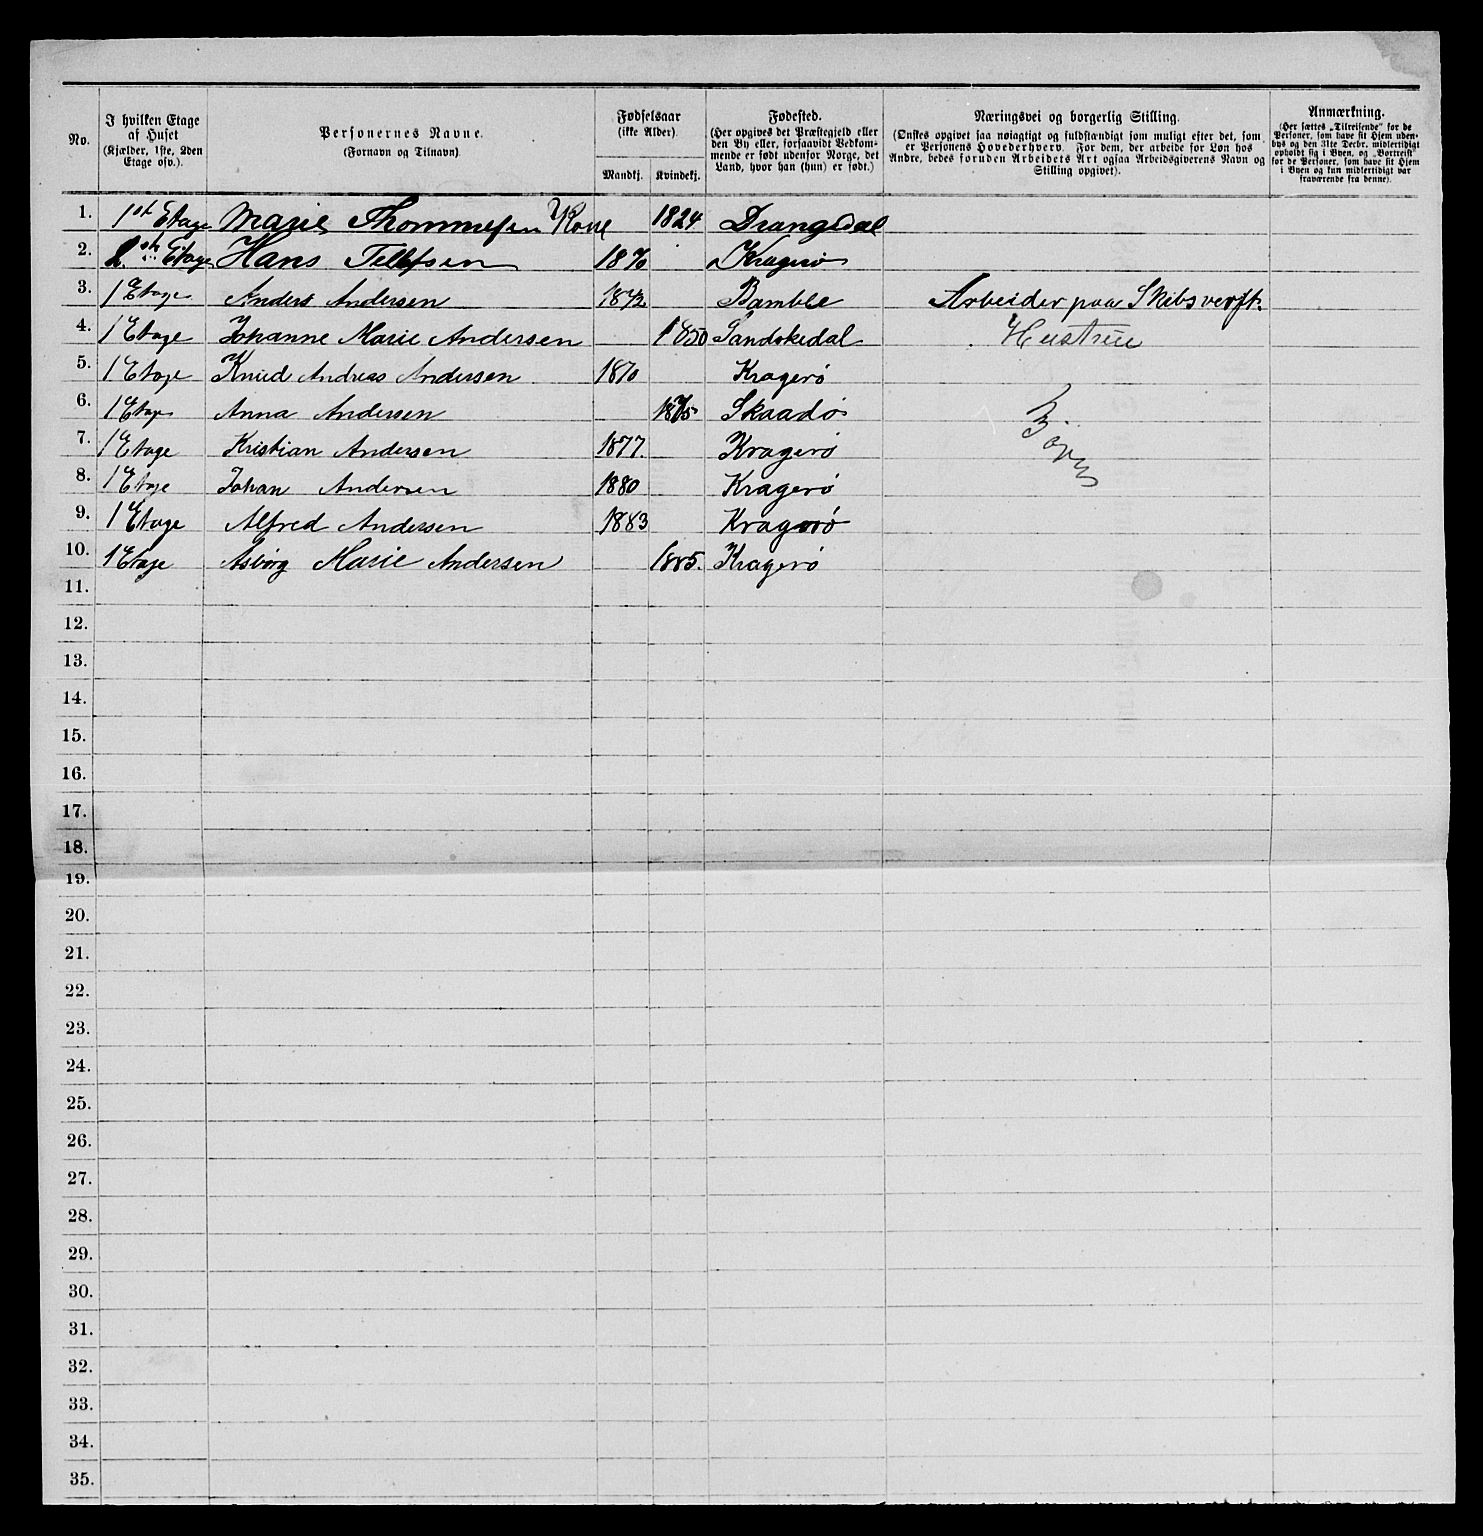 No.
I hvilken Etage af Huset (Kjælder, 1ste, 2den Etage osv.).
Personernes Navne. (Fornavn og Tilnavn)
Fødselsaar (ikke Alder)
Mandkj. Kvindekj.
Fødested. (Her opgives det Præstegjeld eller den By eller, forsaavidt Vedkommende er født udenfor Norge, det Land, hvor han (hun) er født.)
Næringsvei og borgerlig Stilling. (Ønskes opgivet saa nøiagtigt og fuldstændigt som muligt efter det, som er Personens Hovederhverv. For dem, der arbeide for Løn hos Andre, bedes foruden Arbeidets Art ogsaa Arbeidsgiverens Navn og Stilling opgivet).
Anmærkning. (Her sættes „Tilreisende“ for de Personer, som have sit Hjem udenbys og den 31te Decbr. midlertidigt opholdt sig i Byen, og „Bortreist“ for de Personer, som have sit Hjem i Byen og kun midlertidigt var fraværende fra denne).
1. 1st Etage Marie Thommesen Kone 1824 Drangedal
2. Etage Hans Tellefsen 1870 Kragerø
3. 1 Etage Anders Andersen Bamble Arbeider paa Skibsverft
4. 1 Etage Johanne Marie Andersen 1850 Sandøkedal Hustrue
5. 1 Etage Knud Andreas Andersen 1870 Kragerø
6. 1 Etage Anna Andersen 1875 Skaadø
7. 1 Etage Kristian Andersen 1877. Kragerø
8. 1 Etage Johan Andersen 1880 Kragerø
9. 1 Etage Alfred Andersen 1883 Kragerø
10. 1 Etage Asbørg Marie Andersen 1885. Kragerø
11.
12.
13.
14.
15.
16.
17.
18.
19.
20.
21.
22.
23.
24.
25.
26.
27.
28.
29.
30.
31.
32.
33.
34.
35.